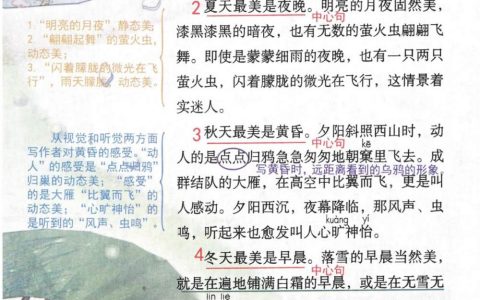 1.“明亮的月夜”,静态美;
2.“翩翩起舞”的萤火虫,
动态美;
3.“闪着朦胧的微光在飞
行”,雨天朦胧,动态美。
2 夏天最美是夜晚。明亮的月夜固然美,
中心句
漆黑漆黑的暗夜,也有无数的萤火虫翩翩飞
舞。即使是蒙蒙细雨的夜晚,也有一只两只
萤火虫,闪着朦胧的微光在飞行,这情景着
实迷人。
从视觉和听觉两方面
写作者对黄昏的感受。“动
人”的感受是“点点归鸦”
归巢的动态美;“感受”
的是大雁“比翼而飞”的
动态美;“心旷神怡”的
是听到的“风声、虫鸣”。
3 秋天最美是黄昏。夕阳斜照西山时,动
中心句
kē
人的是点点归鸦急急匆匆地朝窠里飞去。成
写黄昏时,远距离看到的乌鸦的形象。
群结队的大雁,在高空中比翼而飞,更是叫
人感动。夕阳西沉,夜幕降临,那风声、虫
kuàng yí
鸣,听起来也愈发叫人心旷神怡。
4 冬天最美是早晨。落雪的早晨当然美,
中心句
就是在遍地铺满白霜的早晨,或是在无雪无
lǐn liè